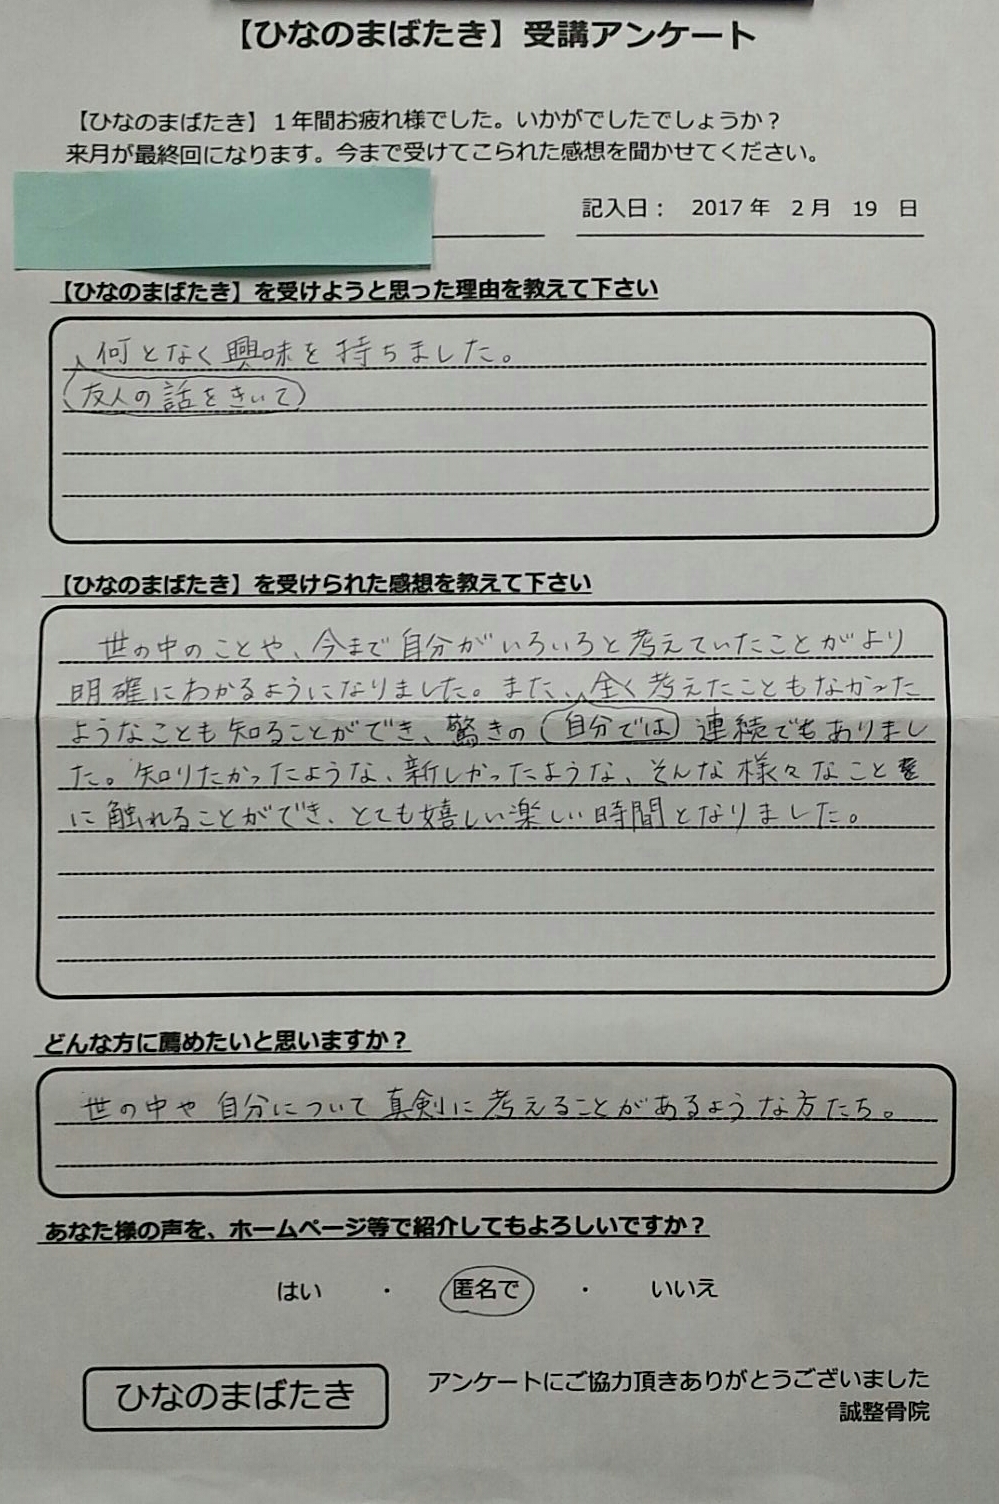 【ひなのまばたき】受講アンケート
【ひなのまばたき】１年間お疲れ様でした。いかがでしたでしょうか？
来月が最終回になります。今まで受けてこられた感想を聞かせてください。
記入日： 2017 年 2 月 19 日
【ひなのまばたき】を受けようと思った理由を教えて下さい
何となく興味を持ちました。
友人の話をきいて
【ひなのまばたき】を受けられた感想を教えて下さい
世の中のことや、今まで自分がいろいろと考えていたことがより
明確にわかるようになりました。また、全く考えたこともなかった
ようなことも知ることができ、驚きの（自分では）連続でもありまし
た。知りたかったような、新しかったような、そんな様々なこと
に触れることができ、とても嬉しい楽しい時間となりました。
どんな方に薦めたいと思いますか？
世の中や自分について真剣に考えることがあるような方たち。
あなた様の声を、ホームページ等で紹介してもよろしいですか？
はい ・ 匿名で ・ いいえ
ひなのまばたき
アンケートにご協力頂きありがとうございました
誠整骨院